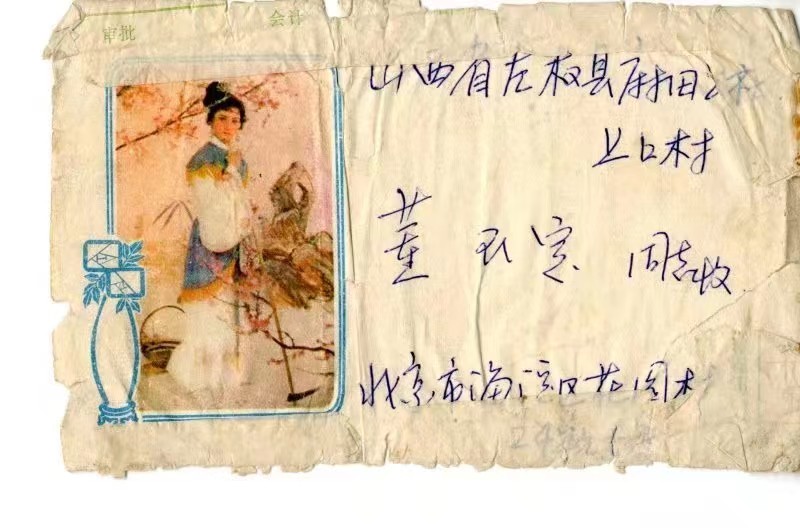 审批 会计
山西省左权县麻田公社
上口村
董玉宝 同志收
北京市海淀区花园村